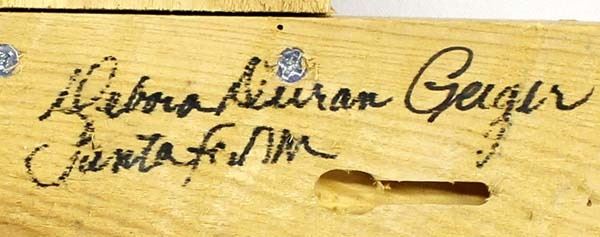 Debora Duran Geiger
Santa Fe NM